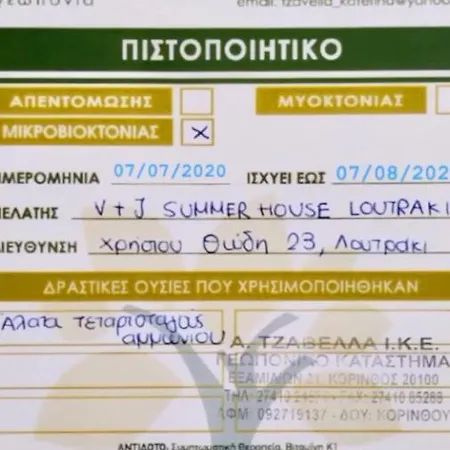 email: tzavella_katerina@yahoo
ΠΙΣΤΟΠΟΙΗΤΙΚΟ
ΑΠΕΝΤΟΜΩΣΗΣ ΜΥΟΚΤΟΝΙΑΣ
ΜΙΚΡΟΒΙΟΚΤΟΝΙΑΣ X
ΗΜΕΡΟΜΗΝΙΑ 07/07/2020 ΙΣΧΥΕΙ ΕΩΣ 07/08/202
ΕΛΑΤΗΣ V + J SUMMER HOUSE LOUTRAKI
ΔΙΕΥΘΥΝΣΗ Χρήστου Θώδη 23, Λουτράκι
ΔΡΑΣΤΙΚΕΣ ΟΥΣΙΕΣ ΠΟΥ ΧΡΗΣΙΜΟΠΟΙΗΘΗΚΑΝ
Άλατα τεταρτοταγούς
αμμωνίου
Α. ΤΖΑΒΕΛΛΑ Ι.Κ.Ε.
ΓΕΩΠΟΝΙΚΟ ΚΑΤΑΣΤΗΜΑ
ΕΞΑΜΙΛΙΩΝ 21, ΚΟΡΙΝΘΟΣ 20100
ΤΗΛ: 27410 FAX: 27410 85288
ΑΦΜ: 092719137 - ΔΟΥ: ΚΟΡΙΝΘΟΥ
ΑΝΤΙΔΟΤΟ: Συμπτωματική Θεραπεία, Βιταμίνη Κ1